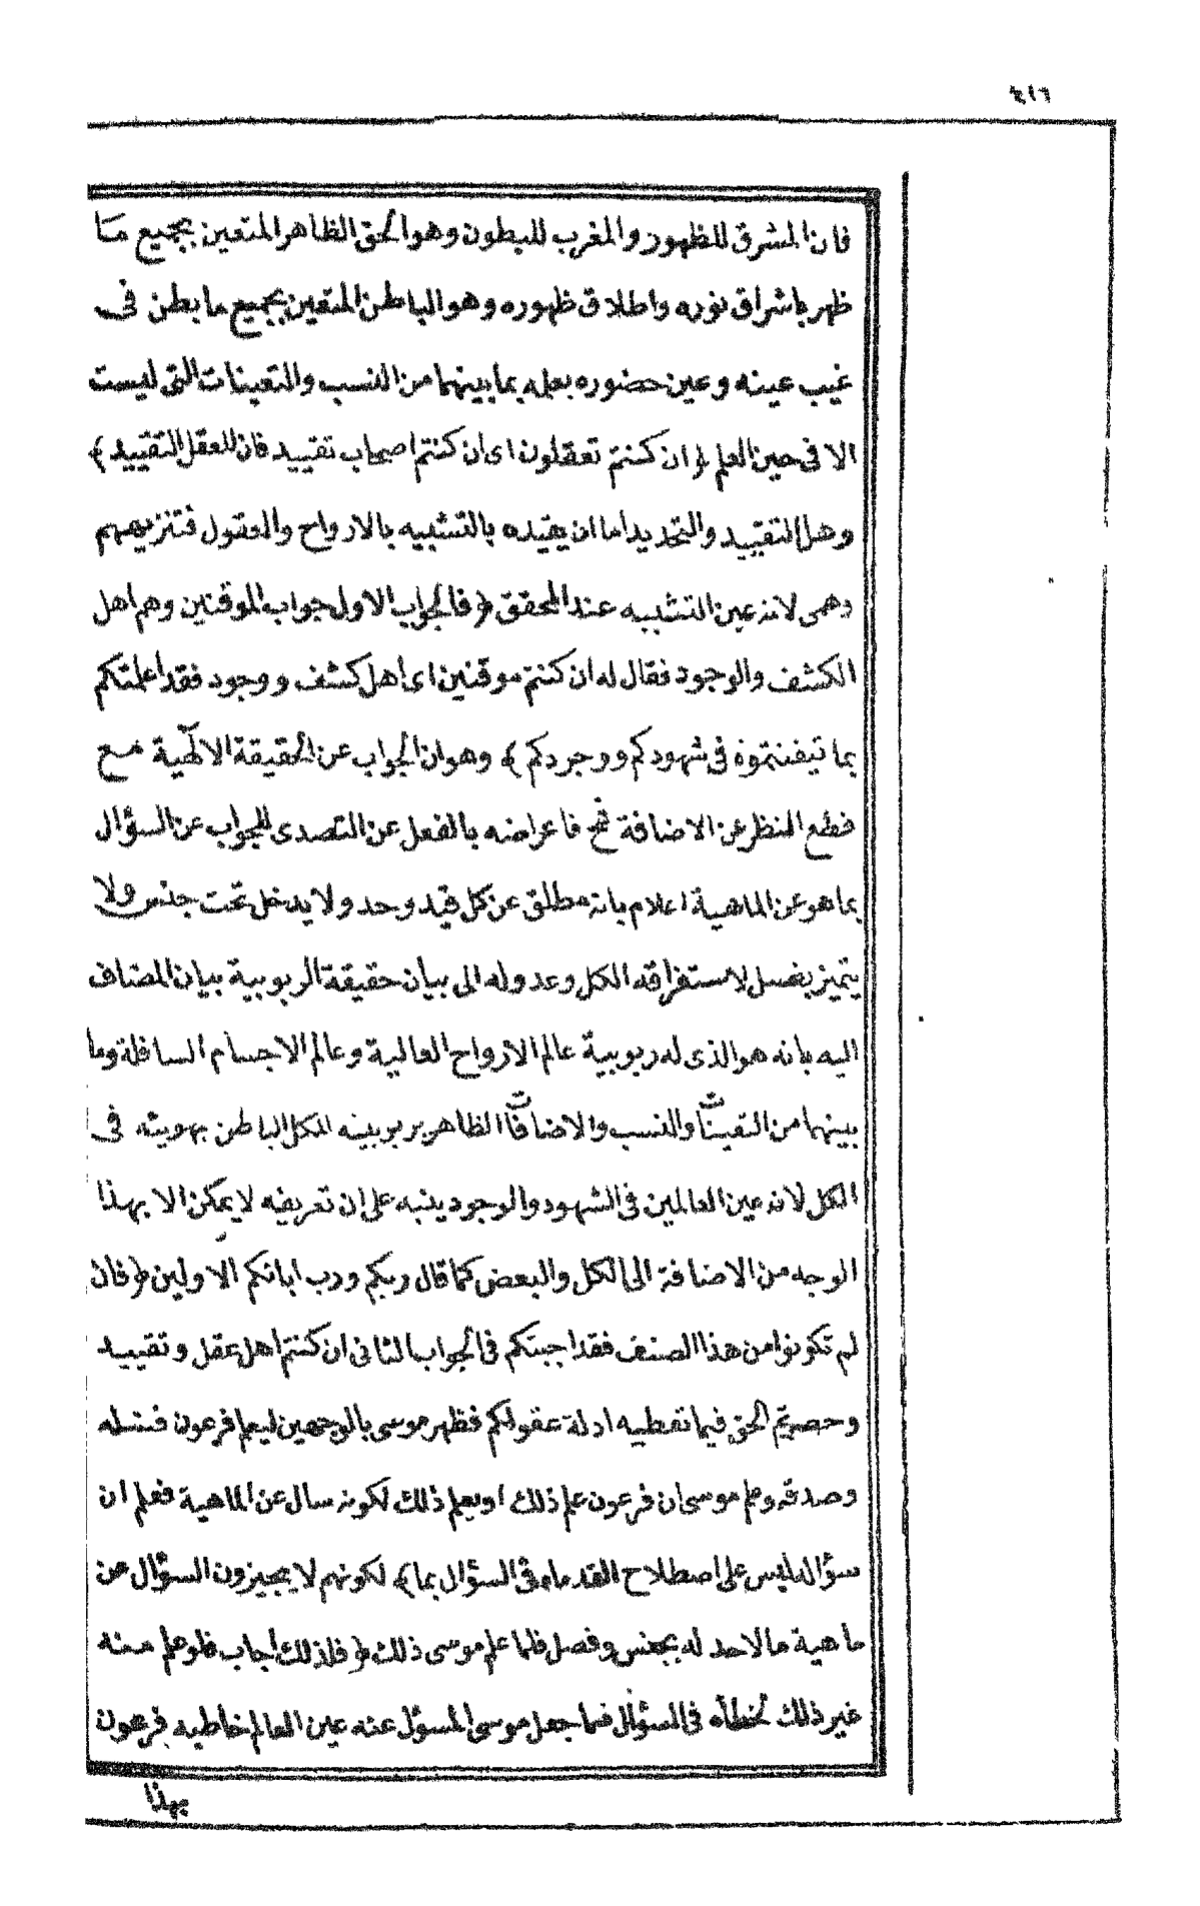 ٤١٦
فان المشرق للظهور والمغرب للبطون وهو الحق الظاهر المتعين بجميع ما
ظهر باشراق نوره واطلاق ظهوره وهو الباطن المتعين بجميع ما بطن فى
غيب عينه وعين حضوره بعلمه بما بينهما من النسب والتعينات التى ليست
الا فى حين العلم ﴿ ان كنتم تعقلون اى ان كنتم اصحاب تقييد فان للعقل التقييد ﴾
وهل التقييد والتحديد اما ان يقيده بالتشبيه بالارواح والعقول فتنزيههم
وهمى لانه عين التشبيه عند المحقق ﴿ فالجواب الاول جواب الموقنين وهم اهل
الكشف والوجود فقال له ان كنتم موقنين اى اهل كشف ووجود فقد اعلمتكم
بما تيقنتموه فى شهودكم ووجودكم ﴾ وهو ان الجواب عن الحقيقة الالٓهية مع
قطع النظر عن الاضافة فح فاعراضه بالفعل عن التصدى للجواب عن السؤال
بما هو عن الماهية اعلام بانه مطلق عن كل قيد وحد ولا يدخل تحت جنس ولا
يتميز بفصل لاستغراقه الكل وعدوله الى بيان حقيقة الربوبية بيان المضاف
اليه بانه هو الذى له ربوبية عالم الارواح العالية وعالم الاجسام السافلة وما
بينهما من التعينات والنسب والاضافات الظاهر بربوبيته للكل الباطن بهويته فى
الكل لانه عين العالمين فى الشهود والوجود ينبه على ان تعريفه لا يمكن الا بهذا
الوجه من الاضافة الى الكل والبعض كما قال ربكم ورب ابائكم الاولين ﴿ فان
لم تكونوا من هذا الصنف فقد اجبتكم فى الجواب الثانى ان كنتم اهل عقل وتقييد
وحصرتم الحق فيما تعطيه ادلة عقولكم فظهر موسى بالوجهين ليعلم فرعون فضله
وصدقه وعلم موسى ان فرعون علم ذلك او يعلم ذلك لكونه سال عن الماهية فعلم ان
سؤاله ليس على اصطلاح القدماء فى السؤال بما ﴾ لكونهم لا يجيزون السؤال عن
ماهية مالاحد له بجنس وفصل فلما علم موسى ذلك ﴿ فلذلك اجاب فلو علم منه
غير ذلك لخطأه فى السؤال فلما جعل موسى المسؤل عنه عين العالم خاطبه فرعون
بهذا